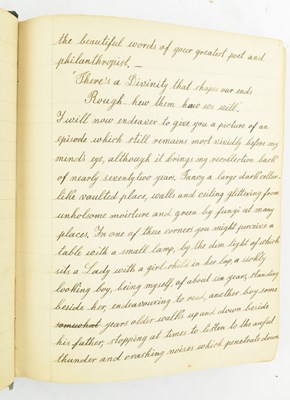 the beautiful words of your greatest poet and
philanthropist. —
"There's a Divinity that shapes our ends
Rough-hew them how we will."
I will now endeavor to give you a picture of an
episode which still remains most vividly before my
minds eye, although it brings my recollection back
of nearly seventy two years. Fancy a large dark cellar
like vaulted place, walls and ceiling glittering from
unholsome moisture and green by fungi at many
places. In one of these corners you might perceive a
table with a small lamp, by the dim light of which
sits a Lady with a girl child in her lap, a sickly
looking boy, being myself, of about six years, standing
beside her, endeavouring to read, another boy some
somewhat years older walks up and down beside
his father, stopping at times to listen to the awful
thunder and crashing noises which penetrate down